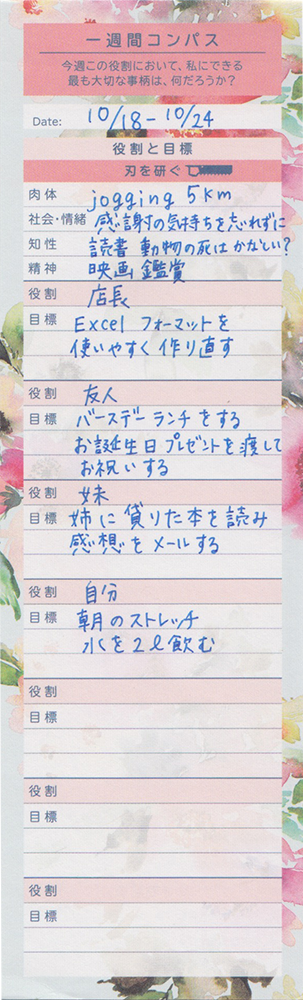 一週間コンパス
今週この役割において、私にできる
最も大切な事柄は、何だろうか?
Date: 10/18-10/24
役割と目標
刃を研ぐ
肉体 jogging 5km
社会・情緒 感謝の気持ちを忘れずに
知性 読書 動物の死はかなしい?
精神 映画鑑賞
役割 店長
目標 Excel フォーマットを
使いやすく作り直す
役割 友人
目標 バースデーランチをする
お誕生日プレゼントを渡して
お祝いする
役割 妹
目標 姉に貸りた本を読み
感想をメールする
役割 自分
目標 朝のストレッチ
水を2ℓ飲む
役割
目標
役割
目標
役割
目標